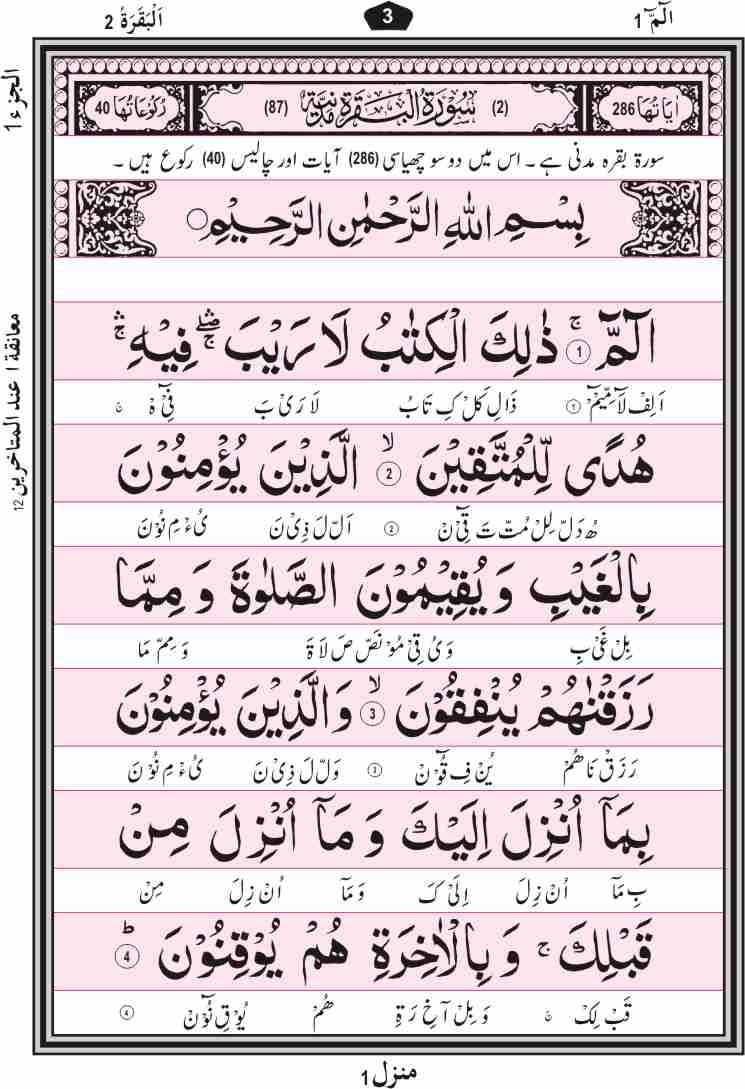 الٓمّٓ 1
3
اَلْبَقَرَةُ 2
الجزء 1
اٰیَاتُهَا 286
(2) سُوْرَةُ الْبَقَرَةِ مَدَنِیَّةٌ (87)
رُکُوْعَاتُهَا 40
سورۃ بقرہ مدنی ہے۔ اس میں دو سو چھیاسی (286) آیات اور چالیس (40) رکوع ہیں۔
بِسْمِ اللهِ الرَّحْمٰنِ الرَّحِیْمِ
الٓمّٓ ۚ 1 ذٰلِكَ الْكِتٰبُ لَا رَیْبَ ۛۖۚ فِیْهِ ۛۚ
اَلِفْ لَآ مِّیْٓمْ ۱ ذَالِ كَلْ كِ تَابُ لَا رَیْ بَ فِیْٓ هْ
هُدًی لِّلْمُتَّقِیْنَ ۙ 2 الَّذِیْنَ یُؤْمِنُوْنَ
هُ دَلْ لِلْ مُتْ تَ قِیْٓنْ ۲ اَلْ لَ ذِیْ نَ یُءْ مِ نُوْ نَ
بِالْغَیْبِ وَ یُقِیْمُوْنَ الصَّلٰوةَ وَ مِمَّا
بِلْ غَیْ بِ وَ یُ قِیْ مُوْ نَصْ صَ لَا ةَ وَ مِمْ مَا
رَزَقْنٰهُمْ یُنْفِقُوْنَ ۙ 3 وَ الَّذِیْنَ یُؤْمِنُوْنَ
رَ زَقْ نَا هُمْ یُنْ فِ قُوْٓنْ ۳ وَلْ لَ ذِیْ نَ یُءْ مِ نُوْ نَ
بِمَاۤ اُنْزِلَ اِلَیْكَ وَ مَاۤ اُنْزِلَ مِنْ
بِ مَاۤ اُنْ زِلَ اِلَیْ كَ وَ مَاۤ اُنْ زِلَ مِنْ
قَبْلِكَ ۚ وَ بِالْاٰخِرَةِ هُمْ یُوْقِنُوْنَ ؕ 4
قَبْ لِكْ وَ بِلْ آ خِ رَ ةِ هُمْ یُوْ قِ نُوْٓنْ ۴
معانقة ۱ عند المتاخرین 12
منزل 1